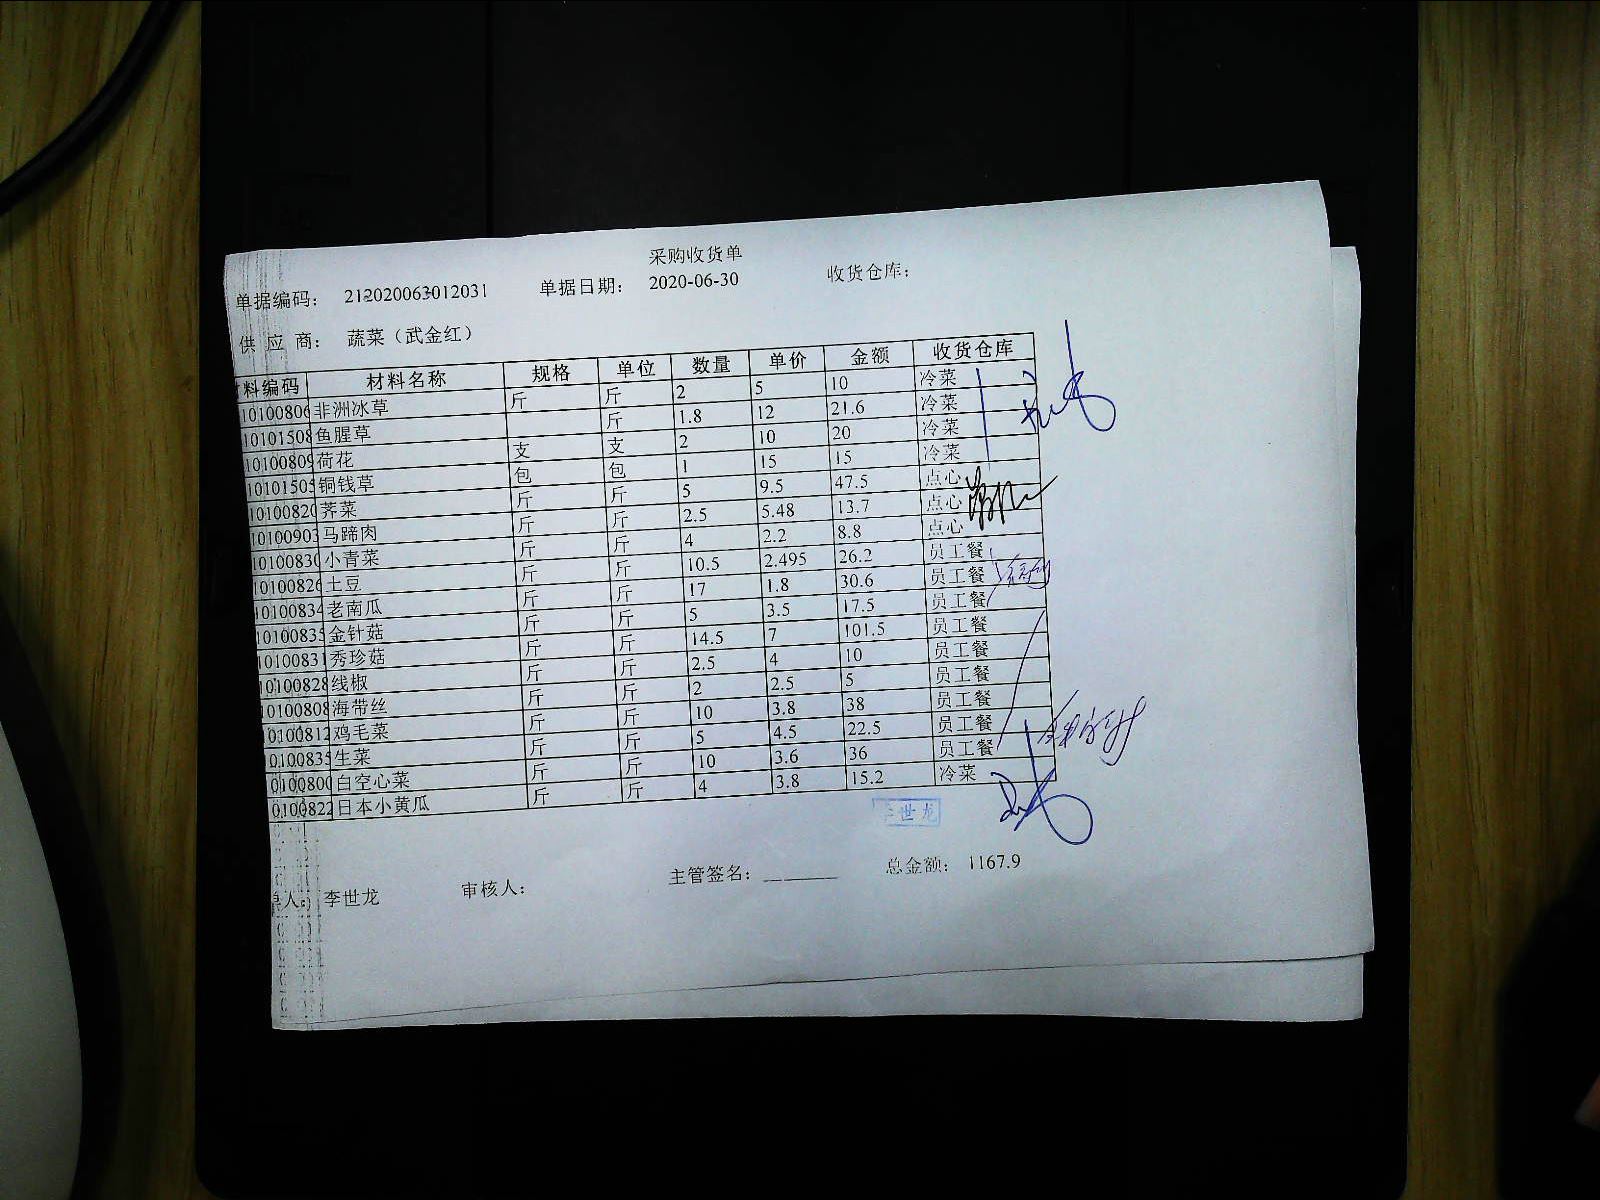 采购收货单
单据编码： 212020063012031 单据日期： 2020-06-30 收货仓库：
供 应 商： 蔬菜（武金红）
料编码 材料名称 规格 单位 数量 单价 金额 收货仓库
10100806 非洲冰草 斤 斤 2 5 10 冷菜
10101508 鱼腥草 斤 1.8 12 21.6 冷菜
10100809 荷花 支 支 2 10 20 冷菜
10101505 铜钱草 包 包 1 15 15 冷菜
10100820 荠菜 斤 斤 5 9.5 47.5 点心
10100903 马蹄肉 斤 斤 2.5 5.48 13.7 点心
10100830 小青菜 斤 斤 4 2.2 8.8 点心
10100826 土豆 斤 斤 10.5 2.495 26.2 员工餐
10100834 老南瓜 斤 斤 17 1.8 30.6 员工餐
10100835 金针菇 斤 斤 5 3.5 17.5 员工餐
10100831 秀珍菇 斤 斤 14.5 7 101.5 员工餐
10100828 线椒 斤 斤 2.5 4 10 员工餐
10100808 海带丝 斤 斤 2 2.5 5 员工餐
10100812 鸡毛菜 斤 斤 10 3.8 38 员工餐
0100835 生菜 斤 斤 5 4.5 22.5 员工餐
0100800 白空心菜 斤 斤 10 3.6 36 员工餐
0100822 日本小黄瓜 斤 斤 4 3.8 15.2 冷菜
李世龙
人： 李世龙 审核人： 主管签名： 总金额： 1167.9